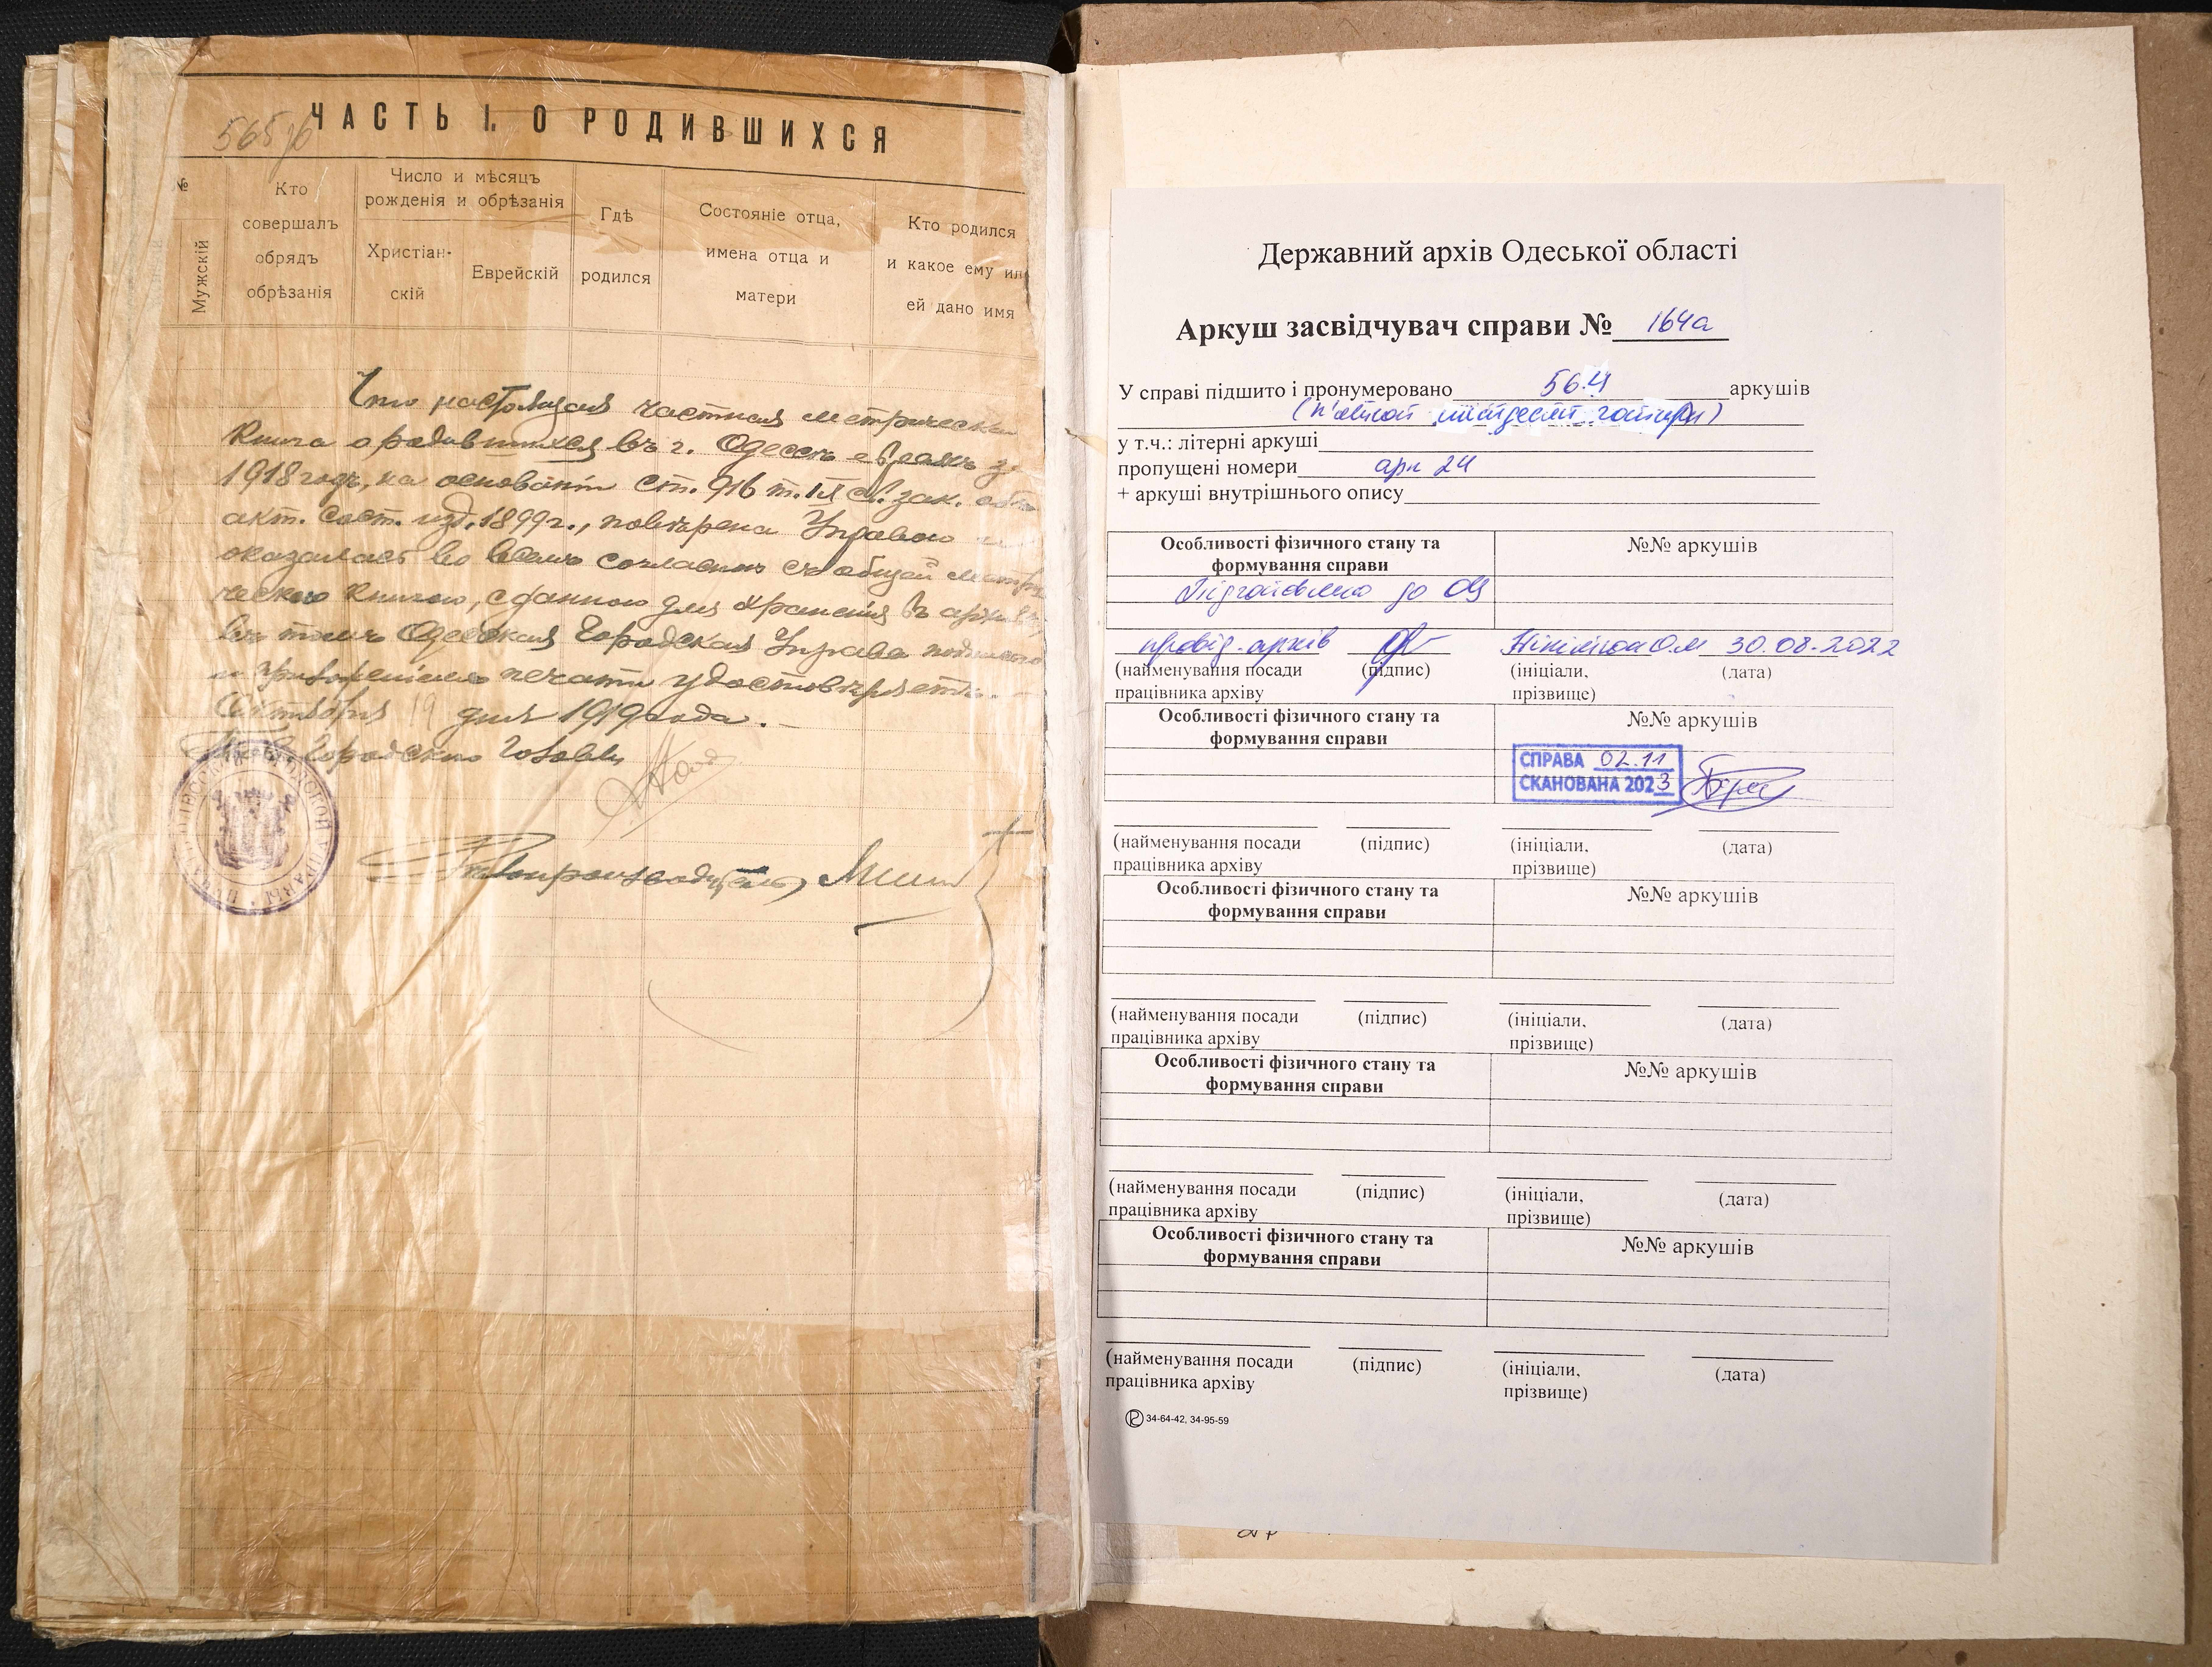 565 об
ЧАСТЬ I. О РОДИВШИХСЯ
№
Мужскій
Кто
совершалъ
обрядъ
обрѣзанія
Число и мѣсяцъ
рожденія и обрѣзанія
Христіан-
скій
Еврейскій
Гдѣ
родился
Состояніе отца,
имена отца и
матери
Кто родился
и какое ему или
ей дано имя
Что настоящая частная метрическая
книга о родившихся въ г. Одессѣ евреяхъ за
1918 годъ, на основаніи ст. 916 т. IX св. зак. о
акт. сост. изд. 1899 г., повѣрена Управою и
оказалась во всемъ согласна съ общей метри
ческою книгою, сданною для храненія въ архивѣ,
въ томъ Одесская Городская Управа подписью
и приложеніемъ печати удостовѣряетъ.
Октября 19 дня 1919 года.
Городского Головы
Дѣлопроизводитель
Державний архів Одеської області
Аркуш засвідчувач справи № 164а
У справі підшито і пронумеровано 564 аркушів
(п'ятсот шістдесят чотири)
у т.ч.: літерні аркуші
пропущені номери арк 24
+ аркуші внутрішнього опису
Особливості фізичного стану та
формування справи
№№ аркушів
Підготовлено до ОЦ
провід. архів 30.08.2022
(найменування посади
працівника архіву
(підпис)
(ініціали,
прізвище)
(дата)
Особливості фізичного стану та
формування справи
№№ аркушів
СПРАВА 02.11
СКАНОВАНА 2023
(найменування посади
працівника архіву
(підпис)
(ініціали,
прізвище)
(дата)
Особливості фізичного стану та
формування справи
№№ аркушів
(найменування посади
працівника архіву
(підпис)
(ініціали,
прізвище)
(дата)
Особливості фізичного стану та
формування справи
№№ аркушів
(найменування посади
працівника архіву
(підпис)
(ініціали,
прізвище)
(дата)
Особливості фізичного стану та
формування справи
№№ аркушів
(найменування посади
працівника архіву
(підпис)
(ініціали,
прізвище)
(дата)
34-64-42, 34-95-59